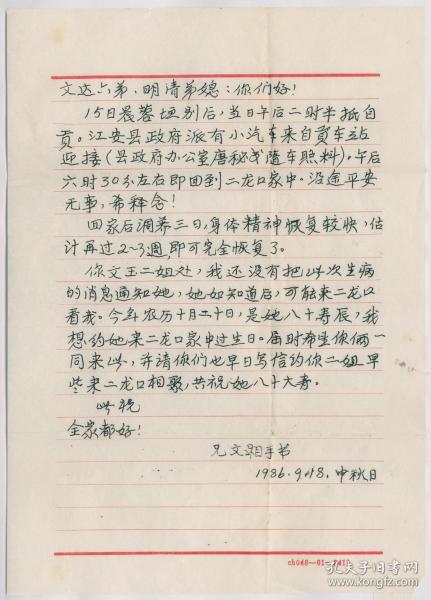 文达六弟、明清弟媳：你们好！
15日晨蓉垣别后，当日午后二时半抵自
贡。江安县政府派有小汽车来自贡车站
迎接（县政府办公室唐秘书随车照料）。午后
六时30分左右即回到二龙口家中。沿途平安
无事，希释念！
回家后调养三日，身体精神恢复较快，估
计再过2~3週，即可完全恢复了。
你文玉二姐处，我还没有把此次生病
的消息通知她，她如知道后，可能来二龙口
看我。今年农历十月二十日，是她八十寿辰，我
想约她来二龙口家中过生日。届时希望你俩一
同来此，并请你们也早日写信约你二姐早
些来二龙口相聚，共祝她八十大寿。
此祝
全家都好！
兄文湘手书
1986.9.18，中秋日
孔夫子旧书网
www.kongfz.com